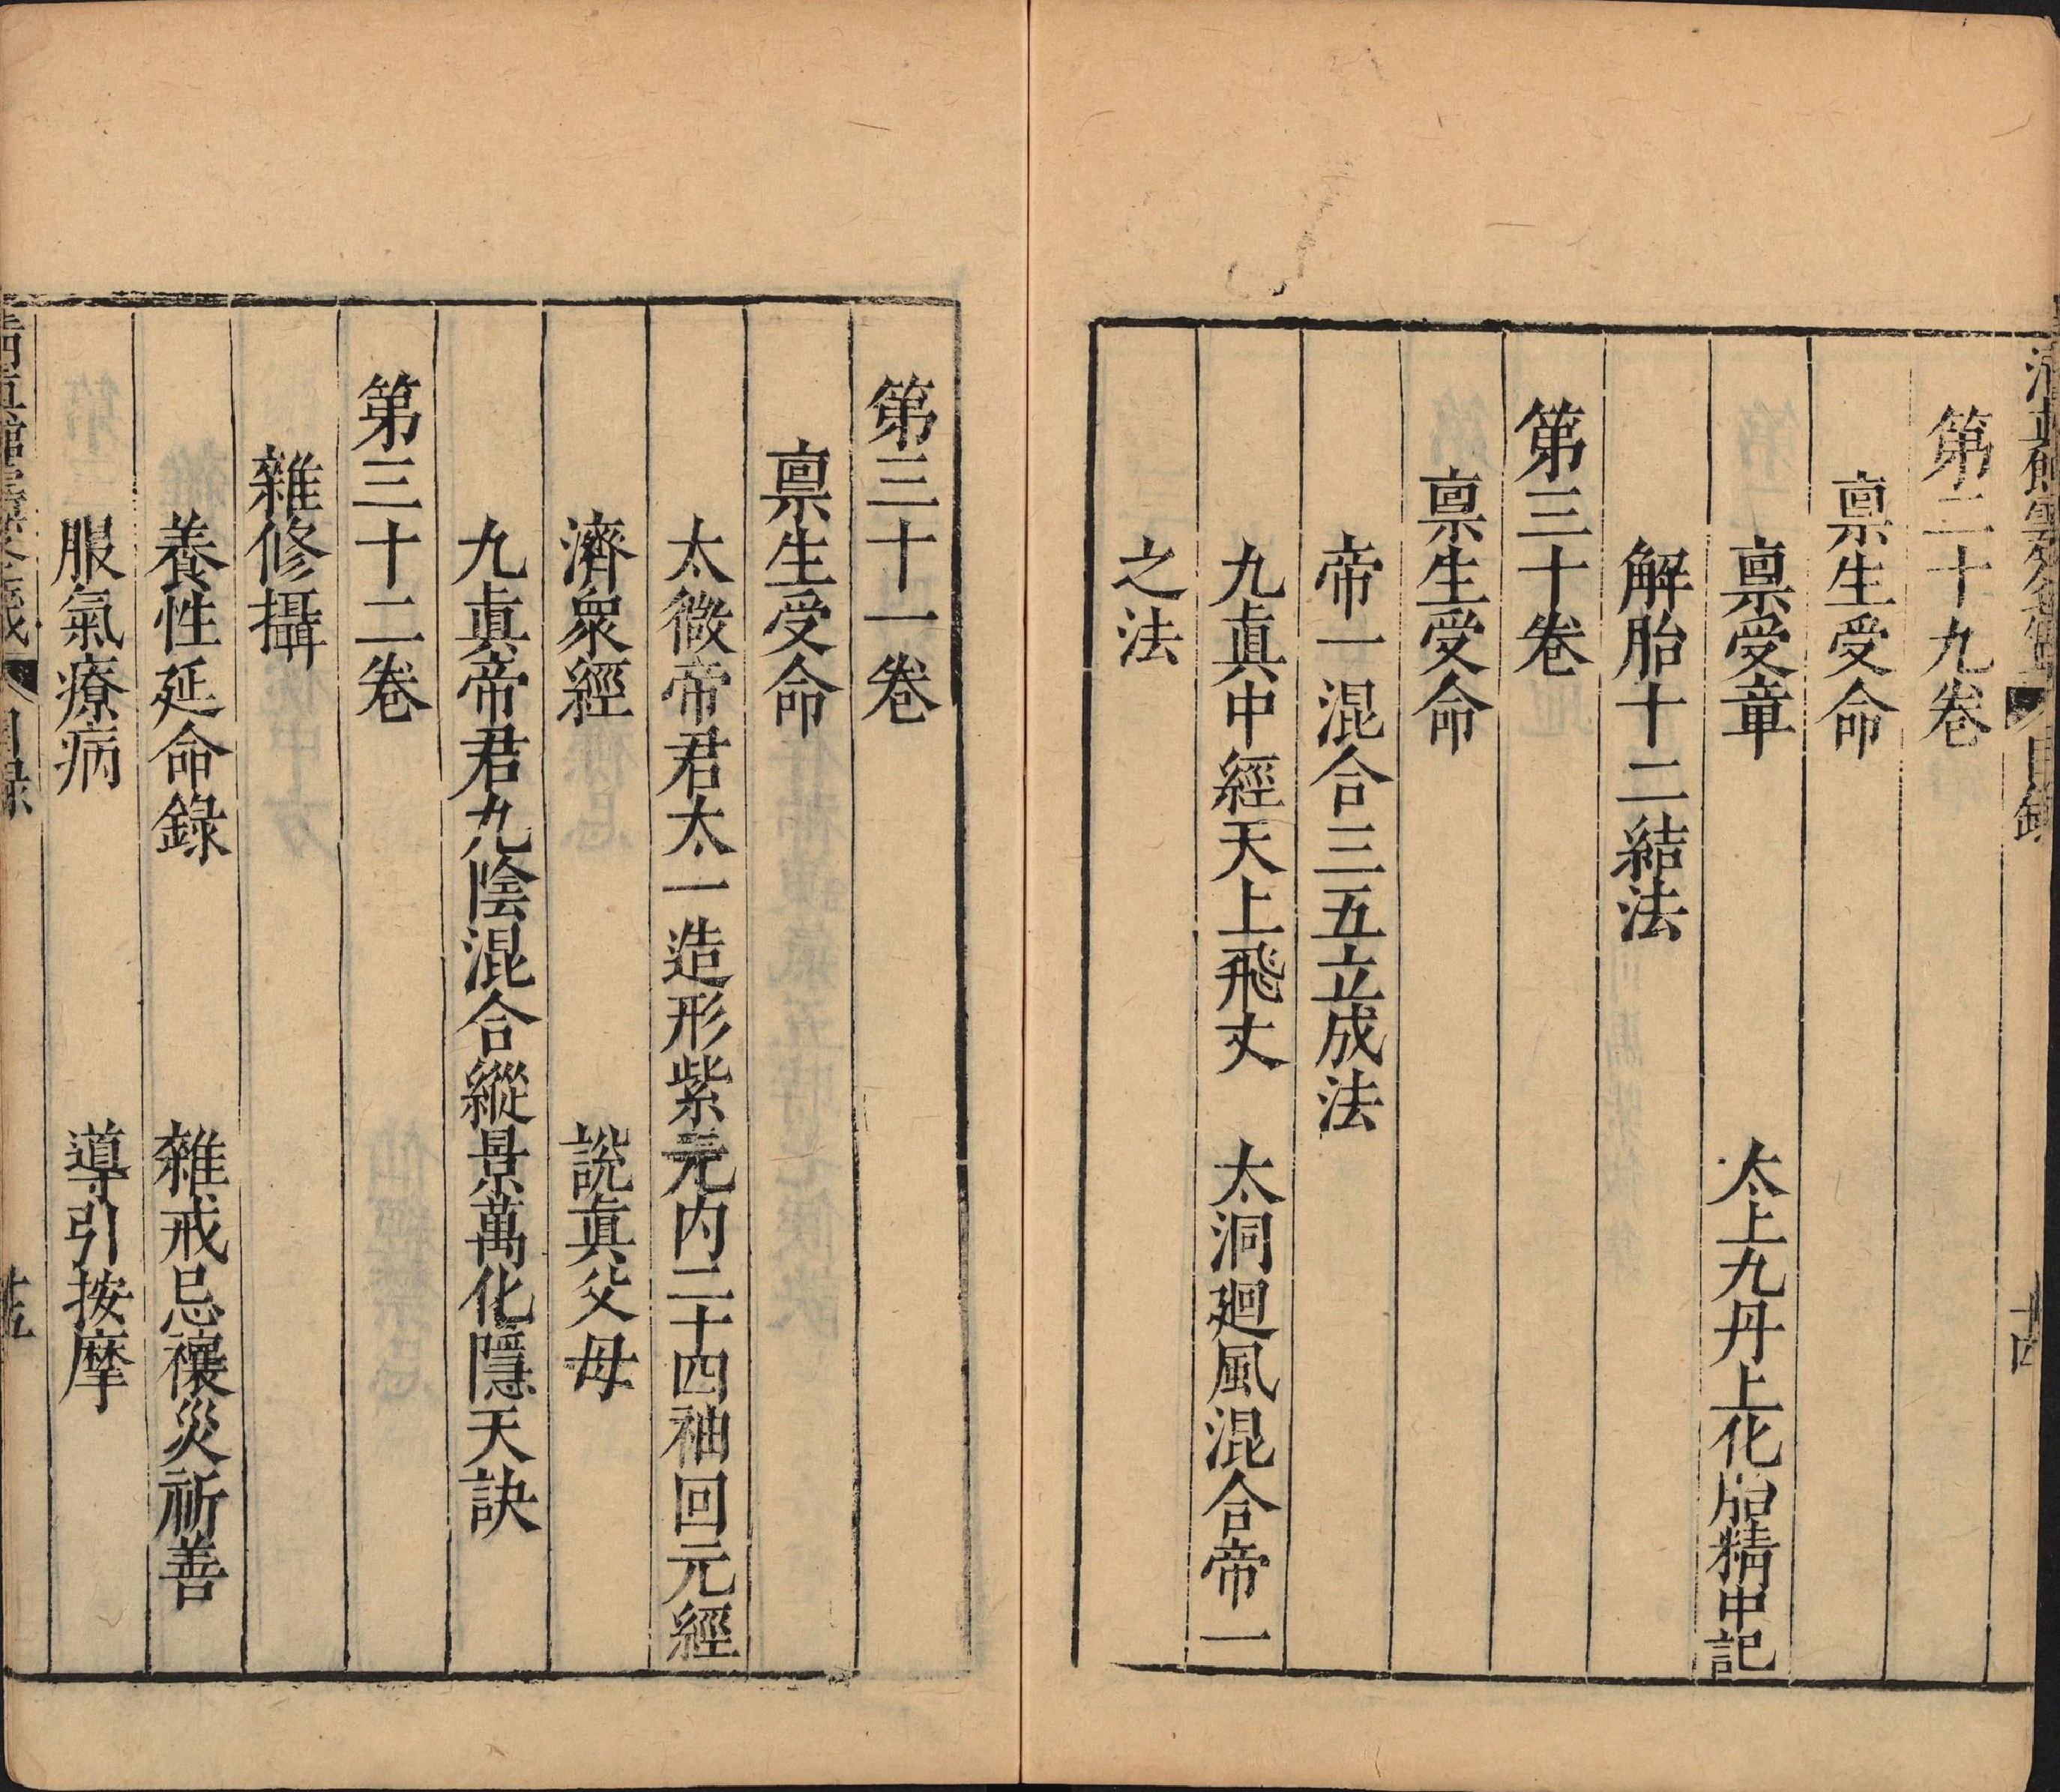 第二十九卷
禀生受命
禀受章 太上九丹上化胎精中記
解胎十二結法
第三十卷
禀生受命
帝一混合三五立成法
九眞中經天上飛文 太洞廻風混合帝一
之法
第三十一卷
禀生受命
太微帝君太一造形紫元内二十四神回元經
濟衆經 說眞父母
九眞帝君九陰混合縱景萬化隱天訣
第三十二卷
雜修攝
養性延命錄 雜戒忌禳災祈善
服氣療病 導引按摩